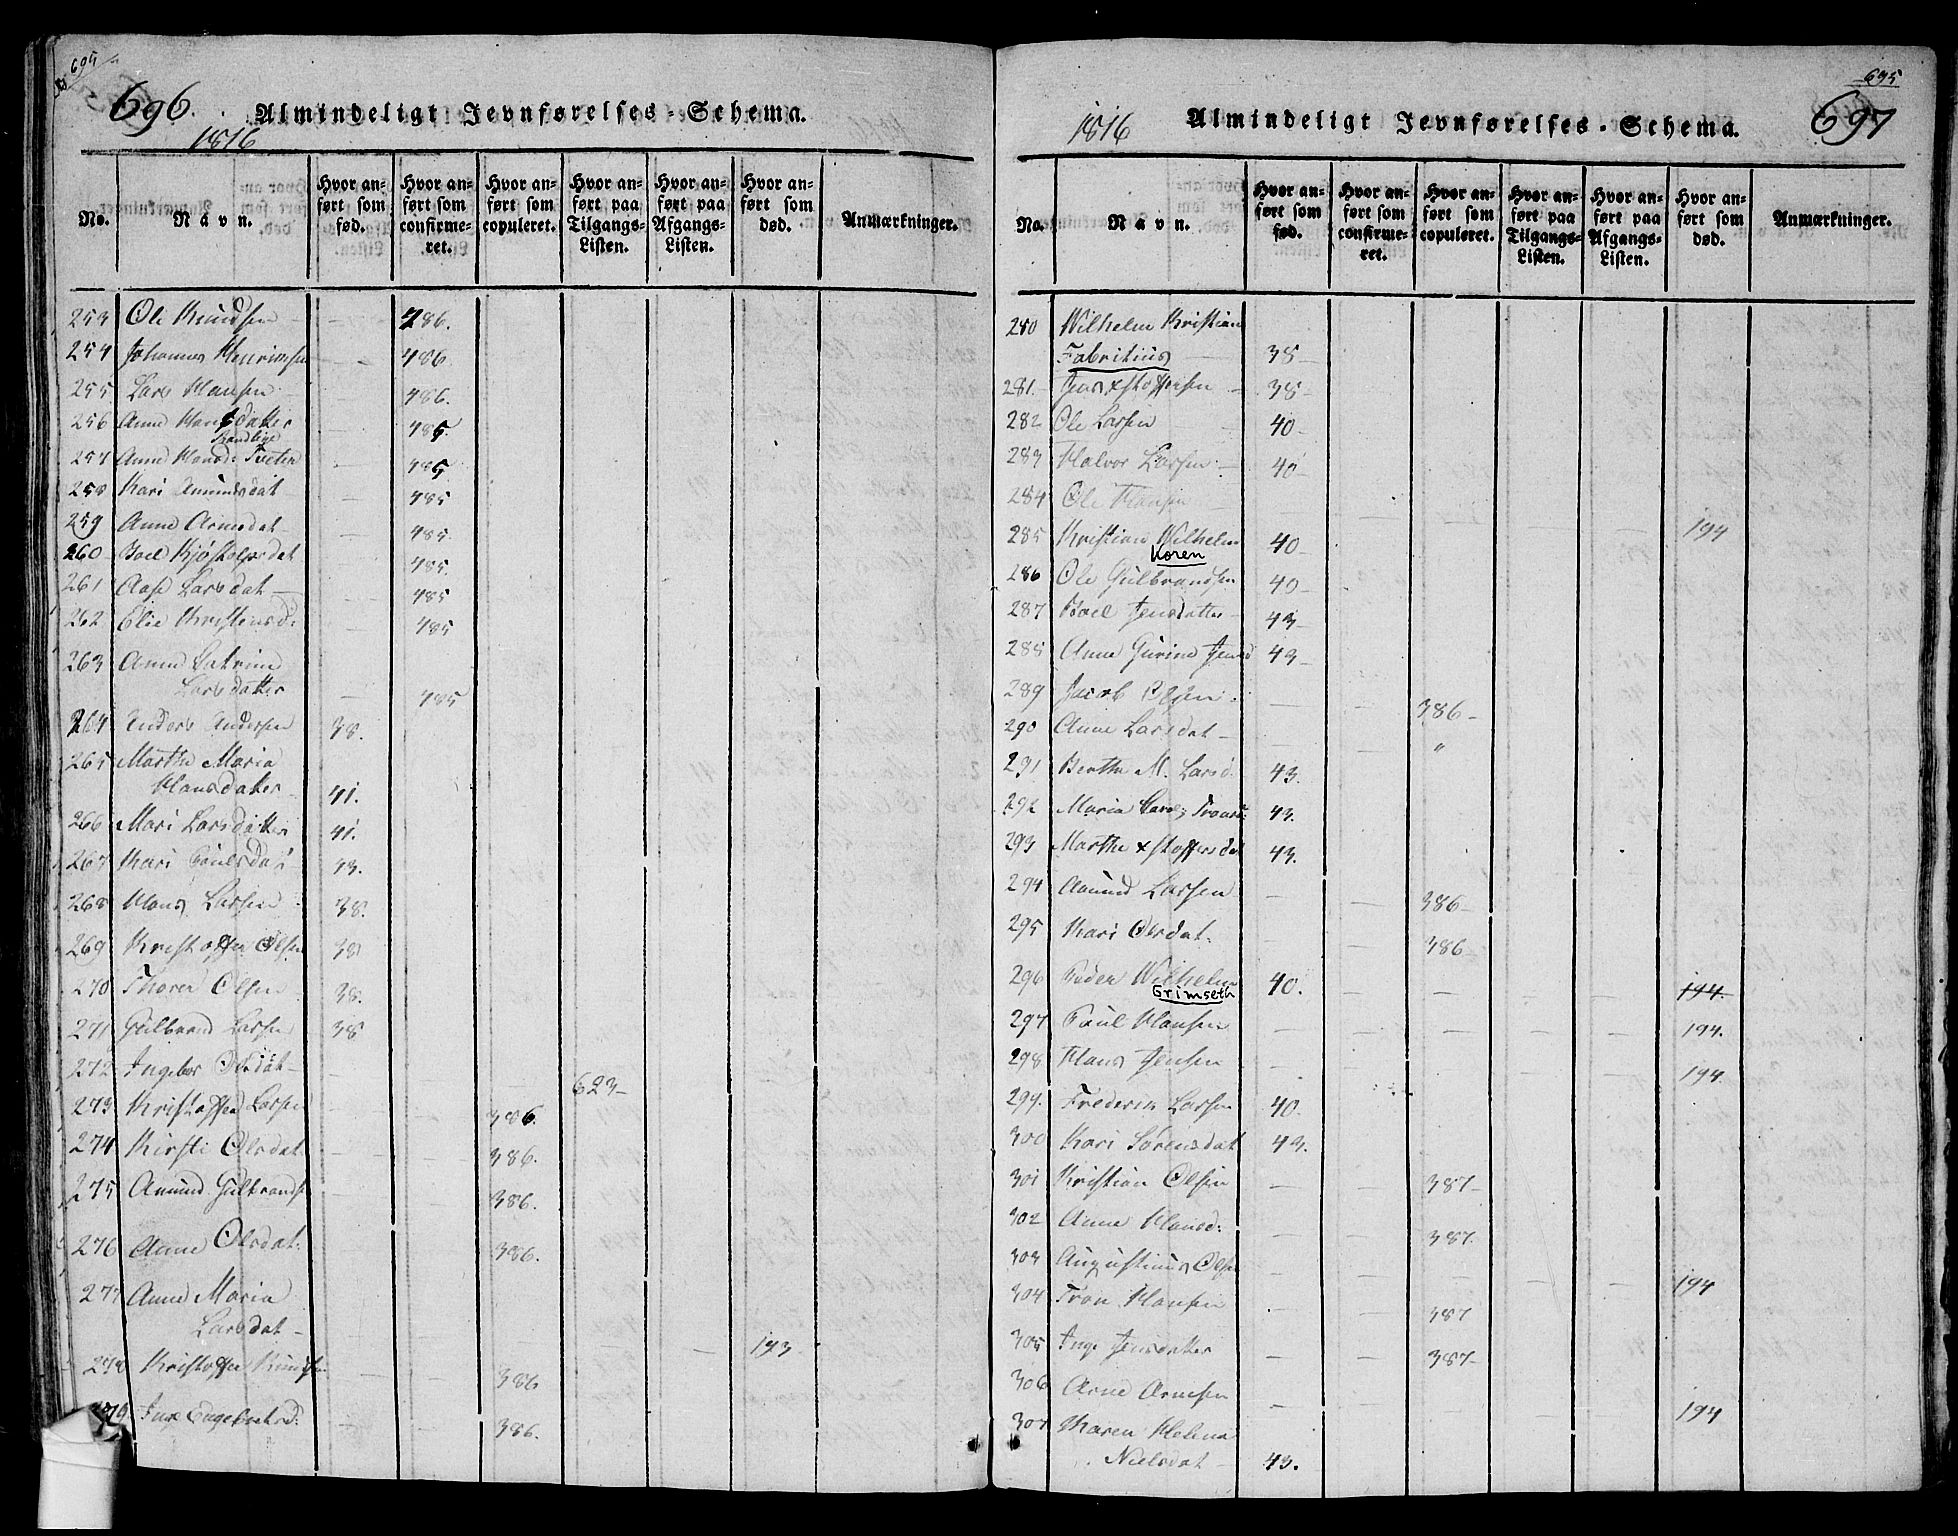 694
696. Almindeligt Jevnførelses-Schema.
1816
No. Navn. Hvor anført som fød. Hvor anført som confirmeret. Hvor anført som copuleret. Hvor anført paa Tilgangs-Listen. Hvor anført paa Afgangs-Listen. Hvor anført som død. Anmærkninger.
253 Ole Knudsen 486.
254 Johannes 486
255 Lars Hansen 486.
256 Anne Hansdatter 485.
257 Anne Hansd: Tveten 485
258 Kari Amundsdat 485
259 Anne Arnesdat 485.
260 Boel 485.
261 Aase Larsdat 485
262 Elie Kristensd: 485
263 Anne Catrine
Larsdatter 485
264 Anders Andersen 38.
265 Marthe Maria
Hansdatter 41.
266 Mari Larsdatter 41.
267 Kari Poulsdat 43.
268 Hans Larsen 38.
269 Kristoffer Olsen 38
270 Thorer Olsen 38.
271 Gulbrand Larsen 38
272 Ingebor 623
273 Kristoffer Larsen 386.
274 Kirsti Olsdat 386.
275 Amund Gulbrands 386.
276 Anne Olsdat: 386.
277 Anne Maria
Larsdat 193
278 Kristoffer Knudsen 386
279 Inge Engebretsd: 386.
695
1816 Almindeligt Jevnførelses-Schema. 697
No. Navn. Hvor anført som fød. Hvor anført som confirmeret. Hvor anført som copuleret. Hvor anført paa Tilgangs-Listen. Hvor anført paa Afgangs-Listen. Hvor anført som død. Anmærkninger.
280 Wilhelm Kristian
Fabritius 38
281 Jens xstoffersen 38
282 Ole Larsen 40
283 Halvor Larsen 40
284 Ole Hansen 194
285 Kristian Wilhelm 40
Koren
286 Ole Gulbrandsen 40
287 Boel Jensdatter 43
288 Anne Gurine Jensd 43
289 Jacob Olsen 386
290 Anne Larsdat "
291 Berthe M. Larsd. 43.
292 Maria 43.
293 Marthe xstoffersdat 43.
294 Amund Larsen 386
295 Kari Olsdat. 386
296 Peder Wilhelm 40. 194.
Grimseth
297 Poul Hansen 194.
298 Hans Jensen 194.
299. Frederik Larsen 40.
300 Kari Sörensdat 43.
301 Kristian Olsen 387
302 Anne Hansd: 387.
303 Augustinus Olsen 194
304 Tron Hansen 387
305 Inge Jensdatter 387
306 Arne Arnesen 194
307 Maren Helena
Nielsdat 43.